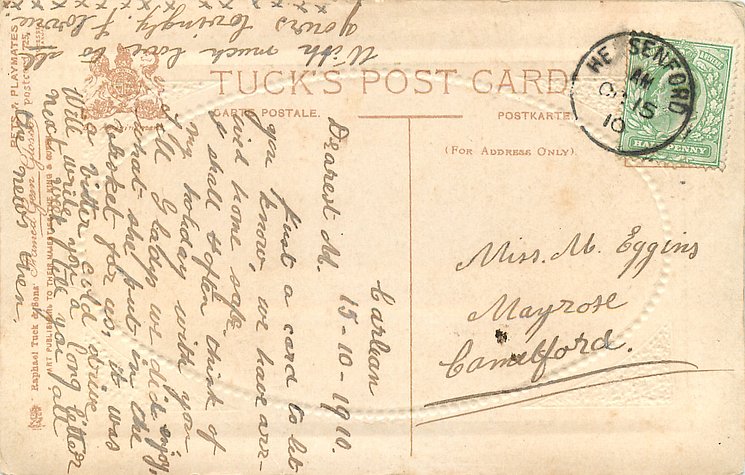 TUCK'S POST CARD
CARTE POSTALE.
POSTKARTE
(FOR ADDRESS ONLY).
HE SENFORD
AM
OC 15
10
HALFPENNY
Miss. M. Eggins
Mayrose
Camelford.
15-10-1910.
Dearest M.
Just a card to let
you know, we have arr-
ived home safe.
I shall often think of
my holiday with you
Tell Gladys we did enjoy
what she put in the
basket for us, it was
a bitter cold drive
Will write you a long letter
next week & tell you all
the news then.
With much love to all
yours lovingly. Florrie
x x x x x x x
PETS & PLAYMATES.
Raphael Tuck & Sons'
ART PUBLISHERS TO THEIR MAJESTIES THE KING &